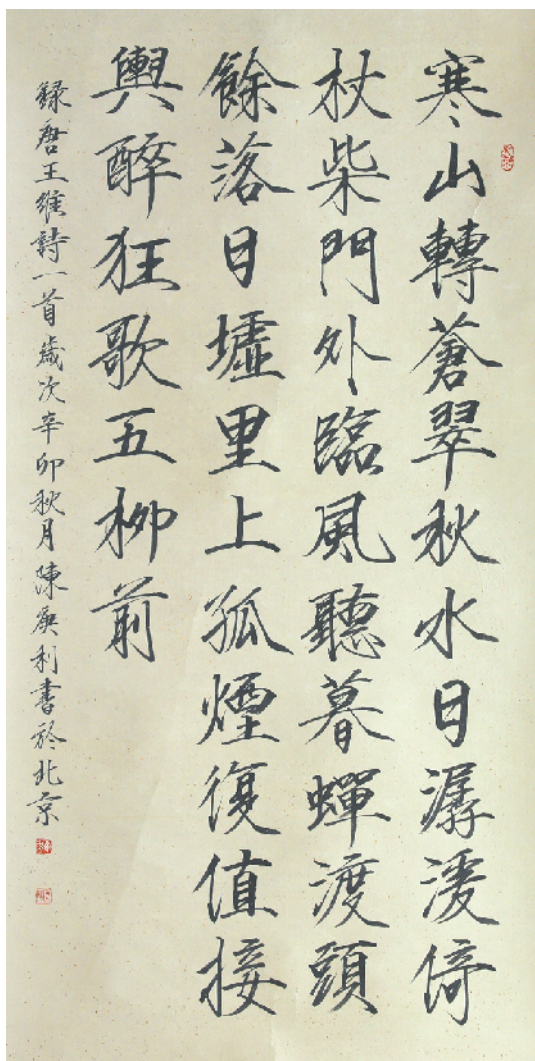 寒山轉蒼翠秋水日潺湲倚
杖柴門外臨風聽暮蟬渡頭
餘落日墟里上孤煙復值接
輿醉狂歌五柳前
錄唐王維詩一首歲次辛卯秋月陳庚利書於北京